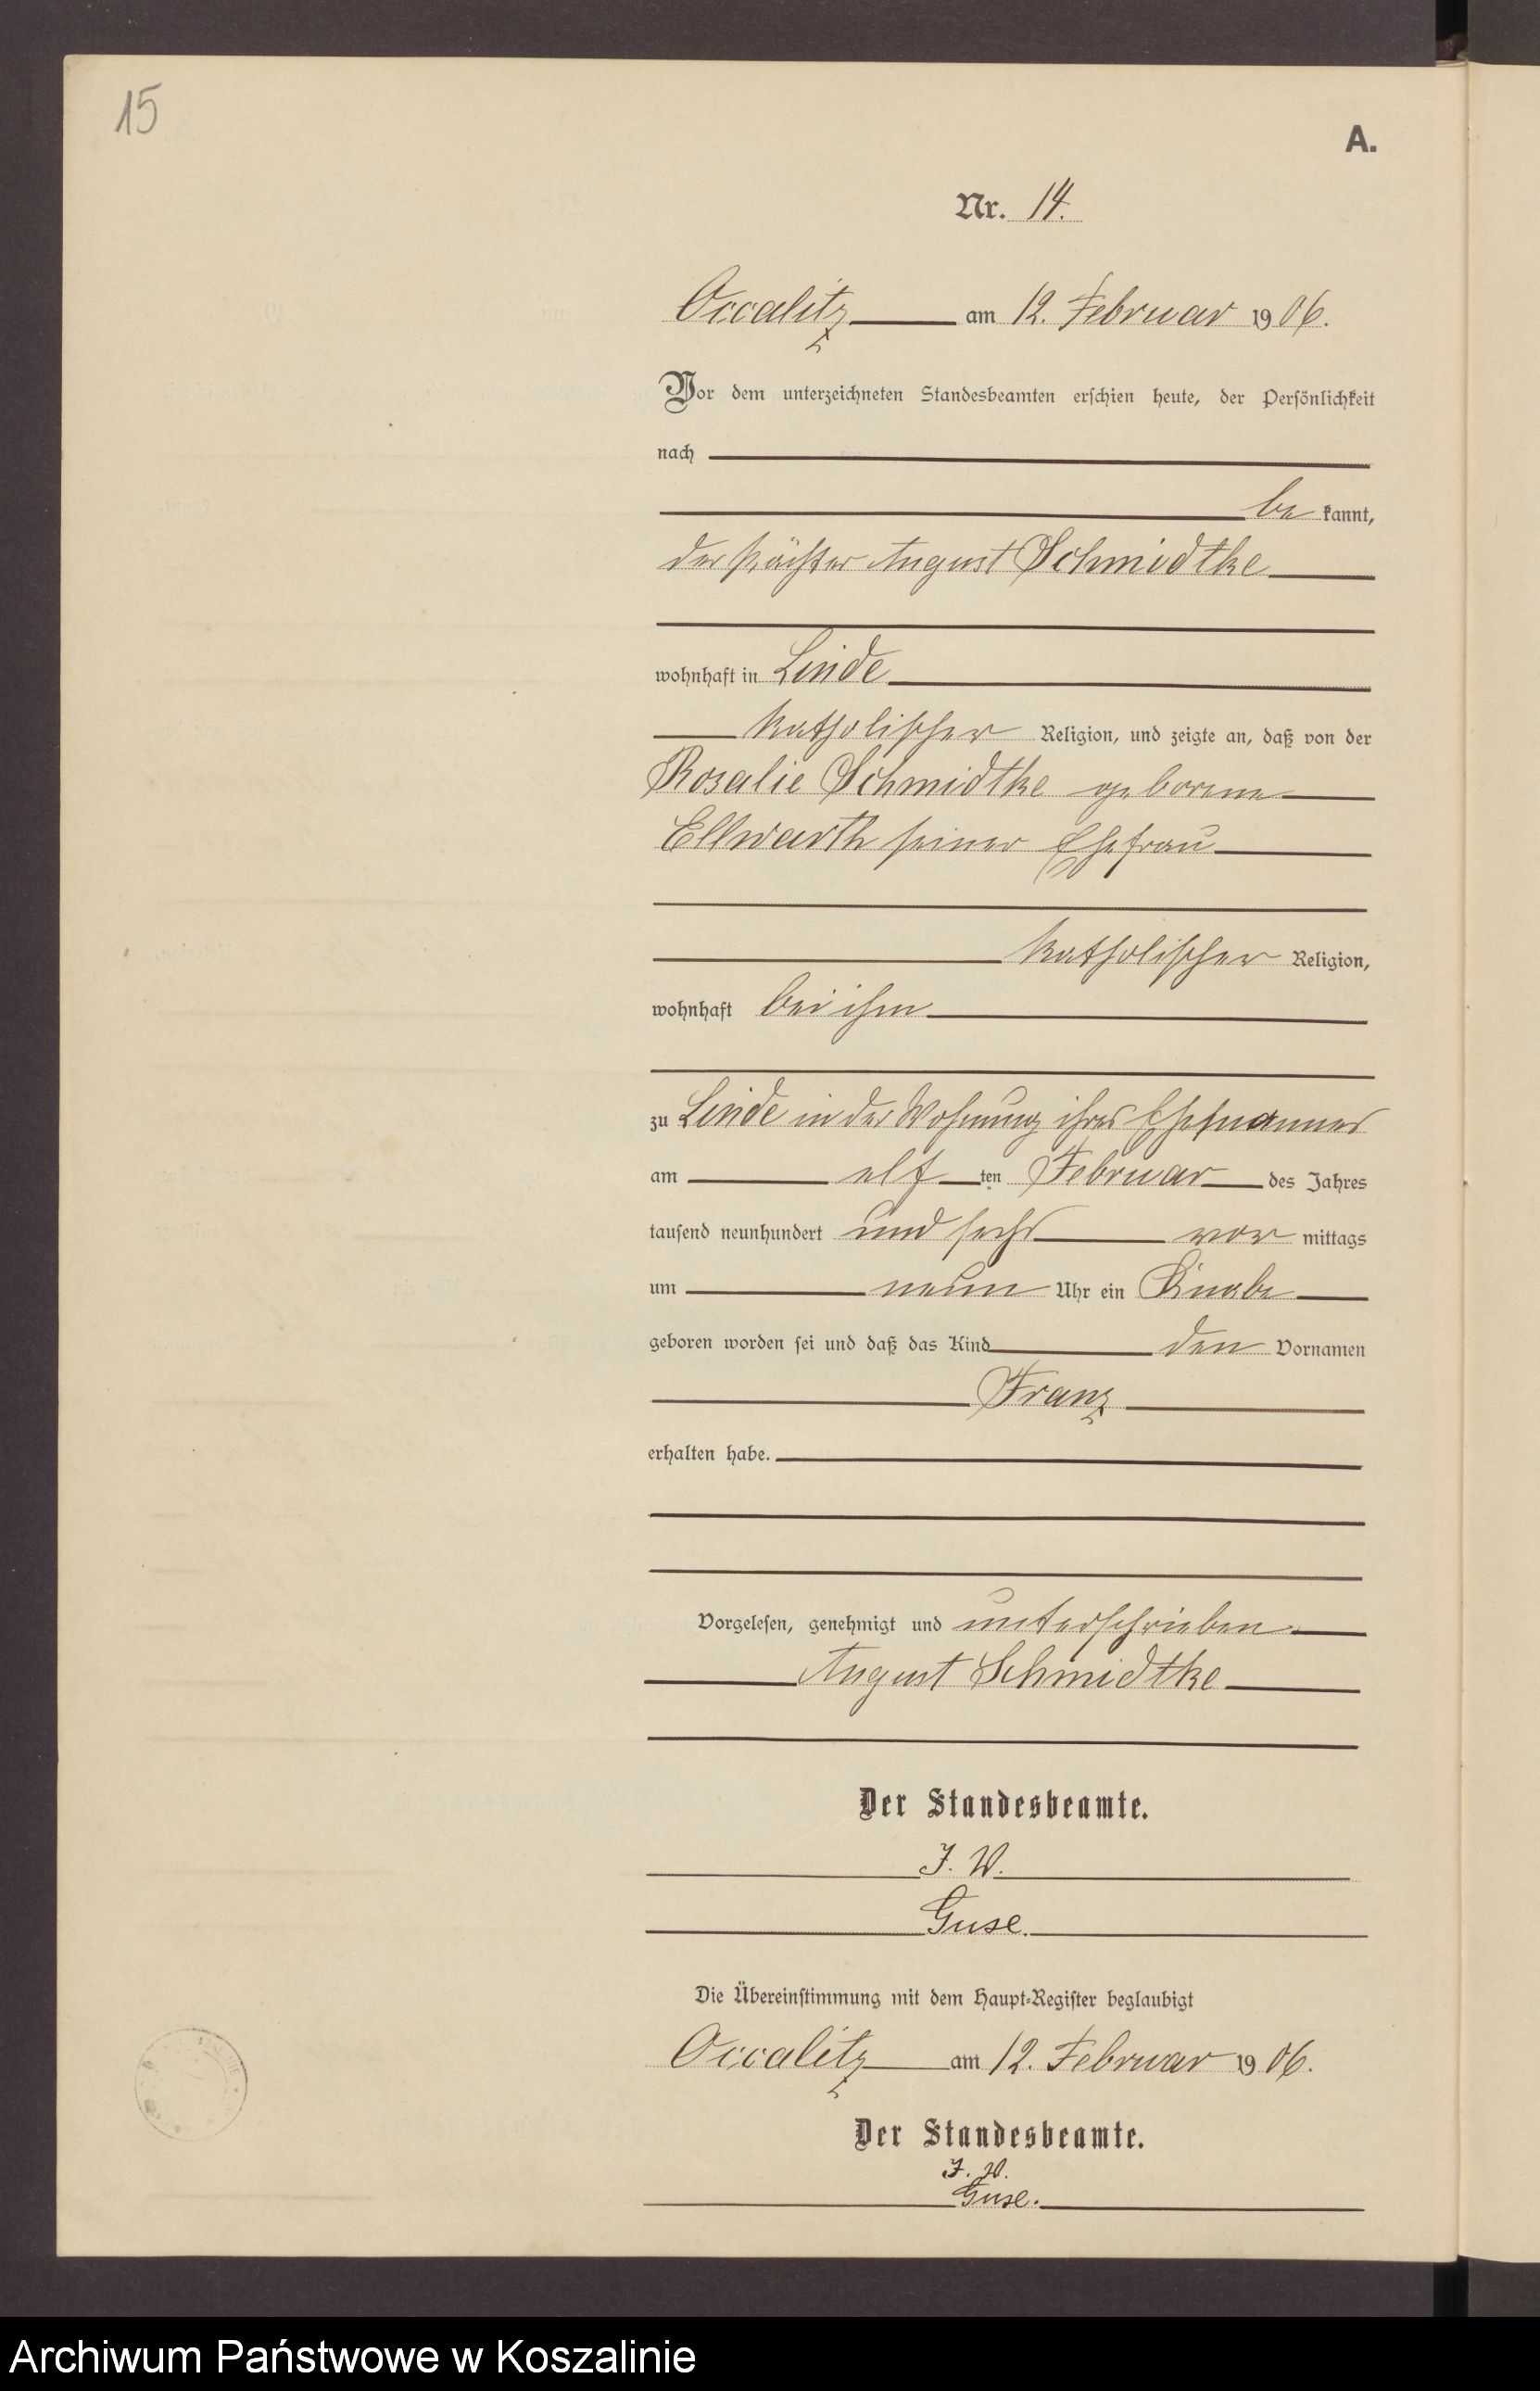 15
A.
Nr. 14.
Occalitz am 12. Februar 1906.
Vor dem unterzeichneten Standesbeamten erschien heute, der Persönlichkeit
nach
be kannt,
der Pächter August Schmidtke
wohnhaft in Linde
katholischer Religion, und zeigte an, daß von der
Rosalie Schmidtke geborene
Ellwarth seiner Ehefrau
katholischer Religion,
wohnhaft bei ihm
zu Linde in der Wohnung ihres Ehemannes
am elf ten Februar des Jahres
tausend neunhundert und sechs vor mittags
um neun Uhr ein Knabe
geboren worden sei und daß das Kind den Vornamen
Franz
erhalten habe.
Vorgelesen, genehmigt und unterschrieben
August Schmidtke
Der Standesbeamte.
J. V.
Guse.
Die Übereinstimmung mit dem Haupt-Register beglaubigt
Occalitz am 12. Februar 1906.
Der Standesbeamte.
J. V.
Guse.
Archiwum Państwowe w Koszalinie